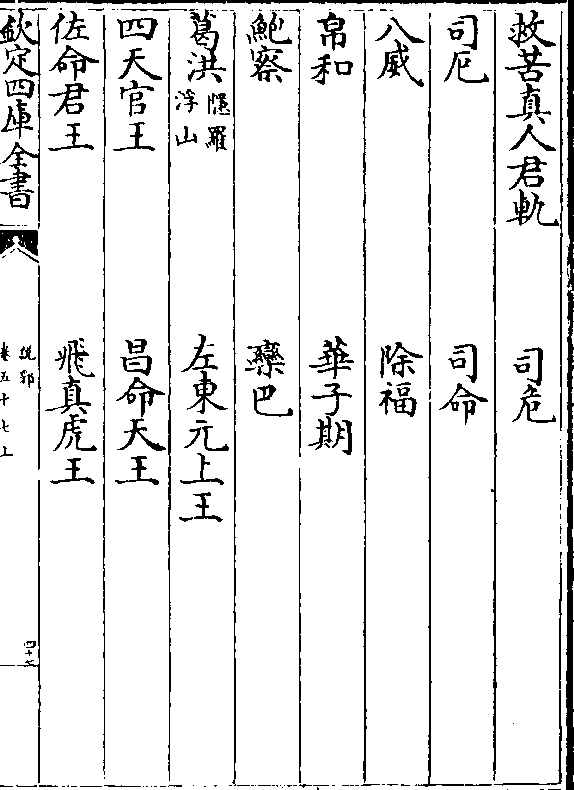 救苦真人君軌　司危
司厄　司命
八威　除福
帛和　華子期
鮑察　欒巴
葛洪隱羅浮山　左東元上王
四天官王　昌命天王
佐命君王　飛真虎王
欽定四庫全書　說郛卷五十七上